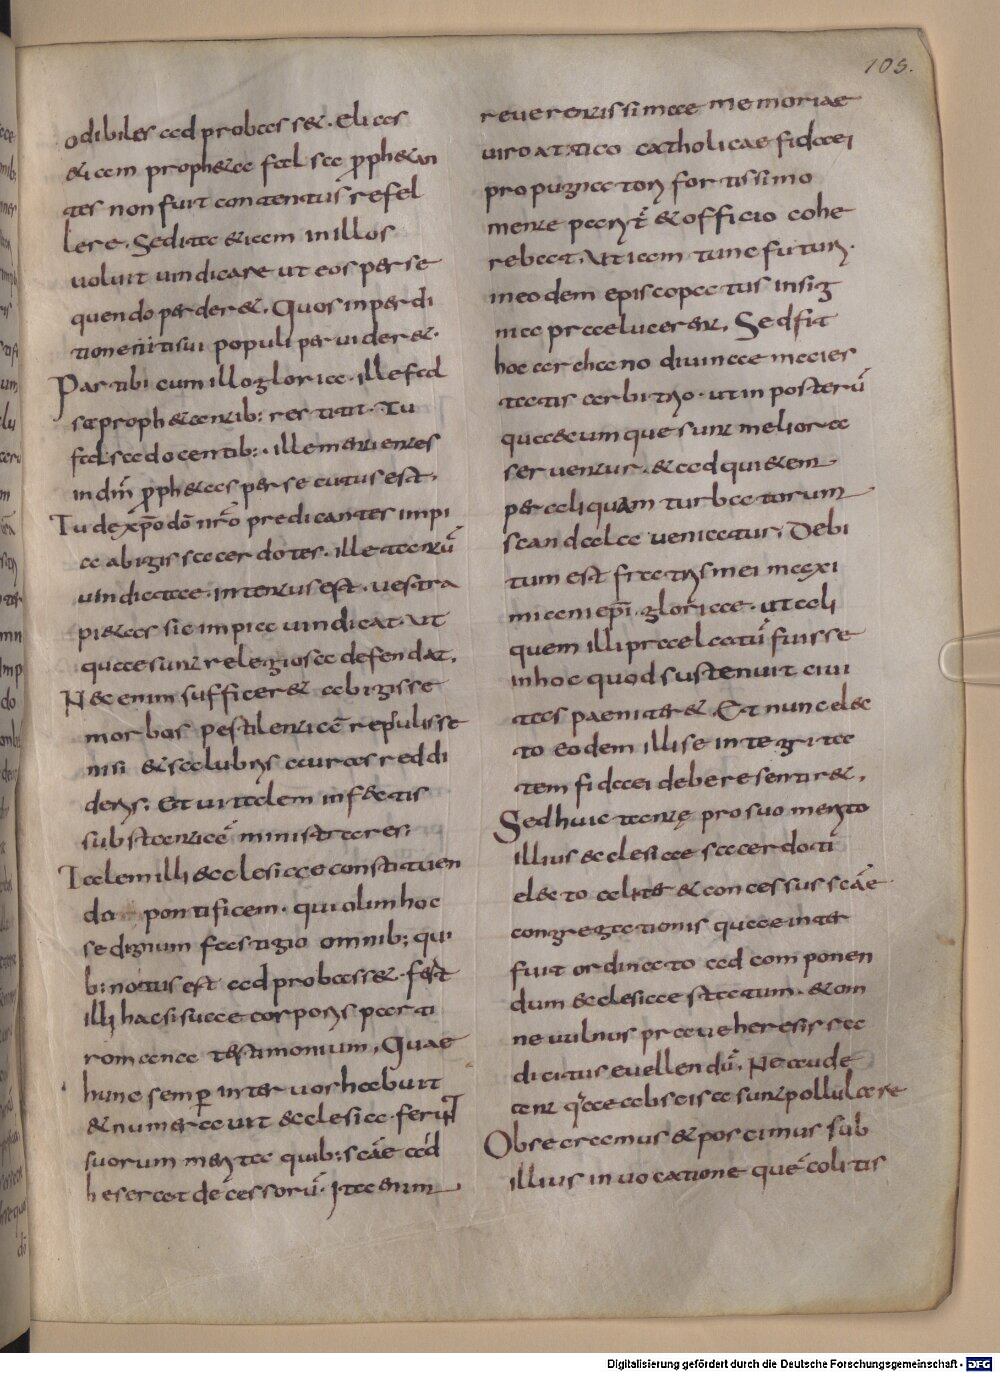 103.
odibiles ad probasset. Elias
etiam propheta falsa p̄phetan
tes non fuit contentus refel
lere. Sed ita etiam in illos
uoluit uindicare ut eos perse
quendo perderet. Quos in perdi
tionem tui populi peruideret.
Par tibi cum illo gloriae. ille fal
sa prophetantib: restitit. Tu
falsa docentib:. ille mentientes
in dm̄ p̄phetas persecutus est.
Tu de xp̄o dō nr̄o predicantes impi
a abigis sacerdotes. ille tantū
uindictae. intentus est. uestra
pietas sic impia uindicat. ut
quae sunt relegiosa defendat.
Nec enim sufficeret abigisse
morbos pestilentiae repulisse
nisi et salubris curas reddi
deris; Et ui talem infectis
substantiae ministrares;
Talem illi aecclesiae constituen
do pontificem. qui olim hoc
se dignum fastigio omnib; qui
b: notus est adprobasset. fert
illi hac si suae corporis parti
romana testimonium. Quae
hunc semper inter uos habuit
et numerauit ecclesia. ferunt
suorum merita quib: scāe ad
heserat decessorū. Ita enim
reuerentissimae memoriae
uiro attico catholicae fidaei
propugnatori fortissimo
mente parit̄ et officio cohe
rebat. Ut iam tunc futuri.
in eodem episcopatus insig
nia praelucerent. Sed fit
hoc archano diuinae maies
tatis arbitrio. ut in posterū
quaecumque sunt meliora
seruentur. et ad quietem
per aliquam turbatorum
scandala ueniatur. Debi
tum est fratris mei maxi
miani ep̄i. gloriae. ut ali
quem illi praelatū fuisse
in hoc quod sustenuit ciui
tas paeniteret. Et nunc elec
to eodem illis e integrita
tem fidaei debere sentiret.
Sed huic tantę pro suo merito
illius aecclesiae sacerdoti
electo aliter et concessus scāe
congregationis quae inter
fuit ordinato ad componen
dum ecclesiae statum. et om
ne uulnus praue heresis sa
dicitus euellendū. Ne aude
ant quae abscisa sunt pollulare
Obsecramus et poscimus sub
illius inuocatione quē colitis
Digitalisierung gefördert durch die Deutsche Forschungsgemeinschaft - DFG